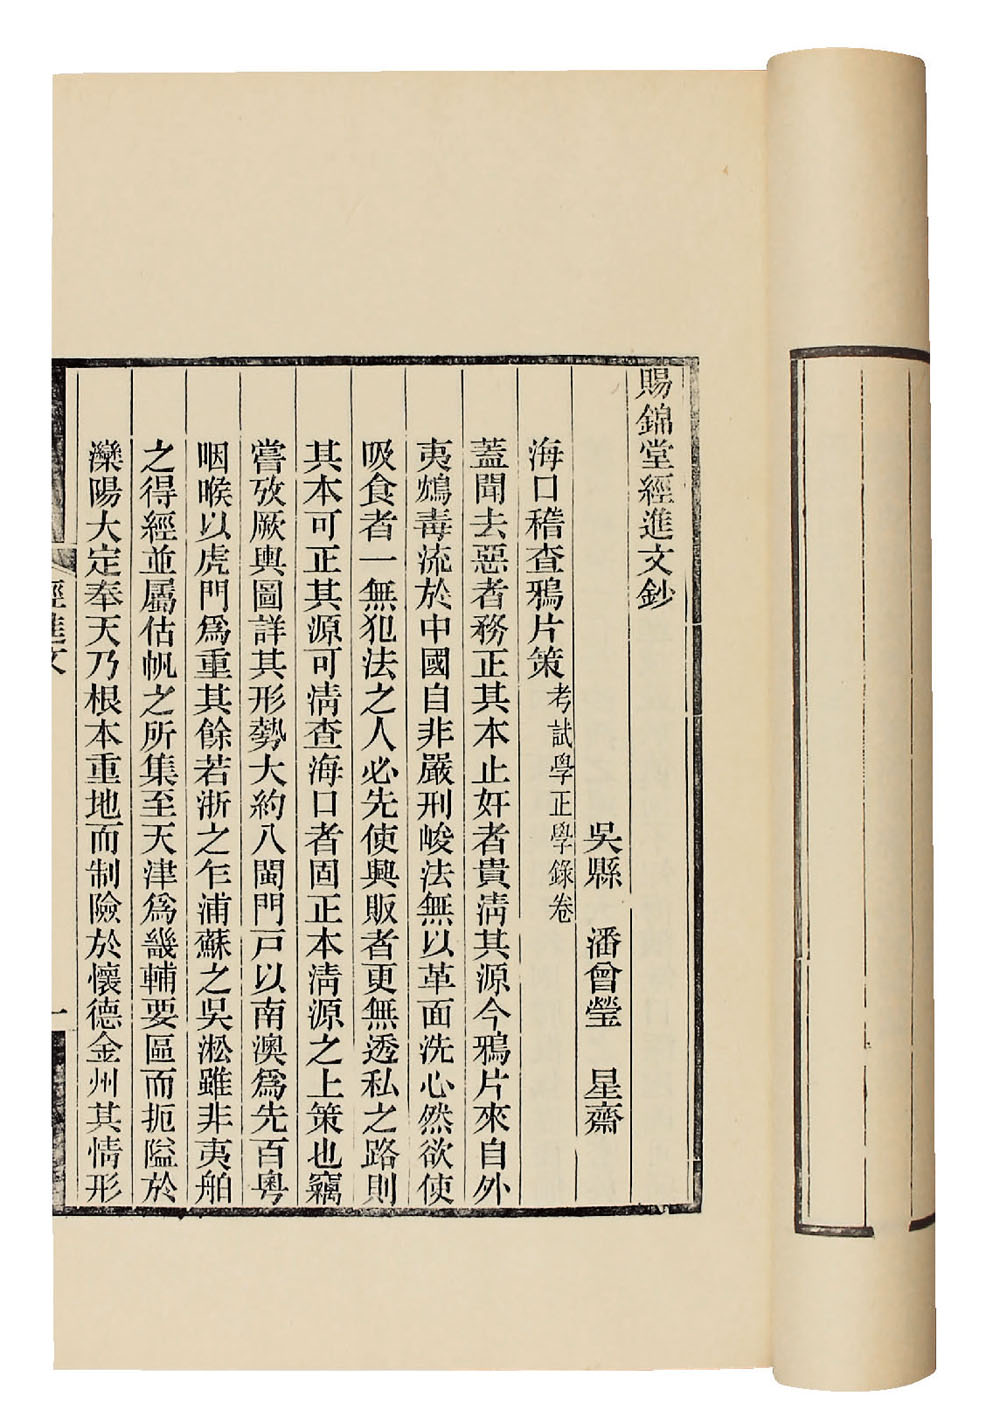 賜錦堂經進文鈔
吳縣 潘曾瑩 星齋
海口稽查鴉片策考試學正學錄卷
蓋聞去惡者務正其本止奸者貴淸其源今鴉片來自外
夷鴆毒流於中國自非嚴刑峻法無以革面洗心然欲使
吸食者一無犯法之人必先使興販者更無透私之路則
其本可正其源可淸查海口者固正本淸源之上策也竊
嘗攷厥輿圖詳其形勢大約八閩門戸以南澳爲先百粵
咽喉以虎門爲重其餘若浙之乍浦蘇之吳淞雖非夷舶
之得經並屬估帆之所集至天津爲畿輔要區而扼隘於
灤陽大定奉天乃根本重地而制險於懷德金州其情形
經進文
一